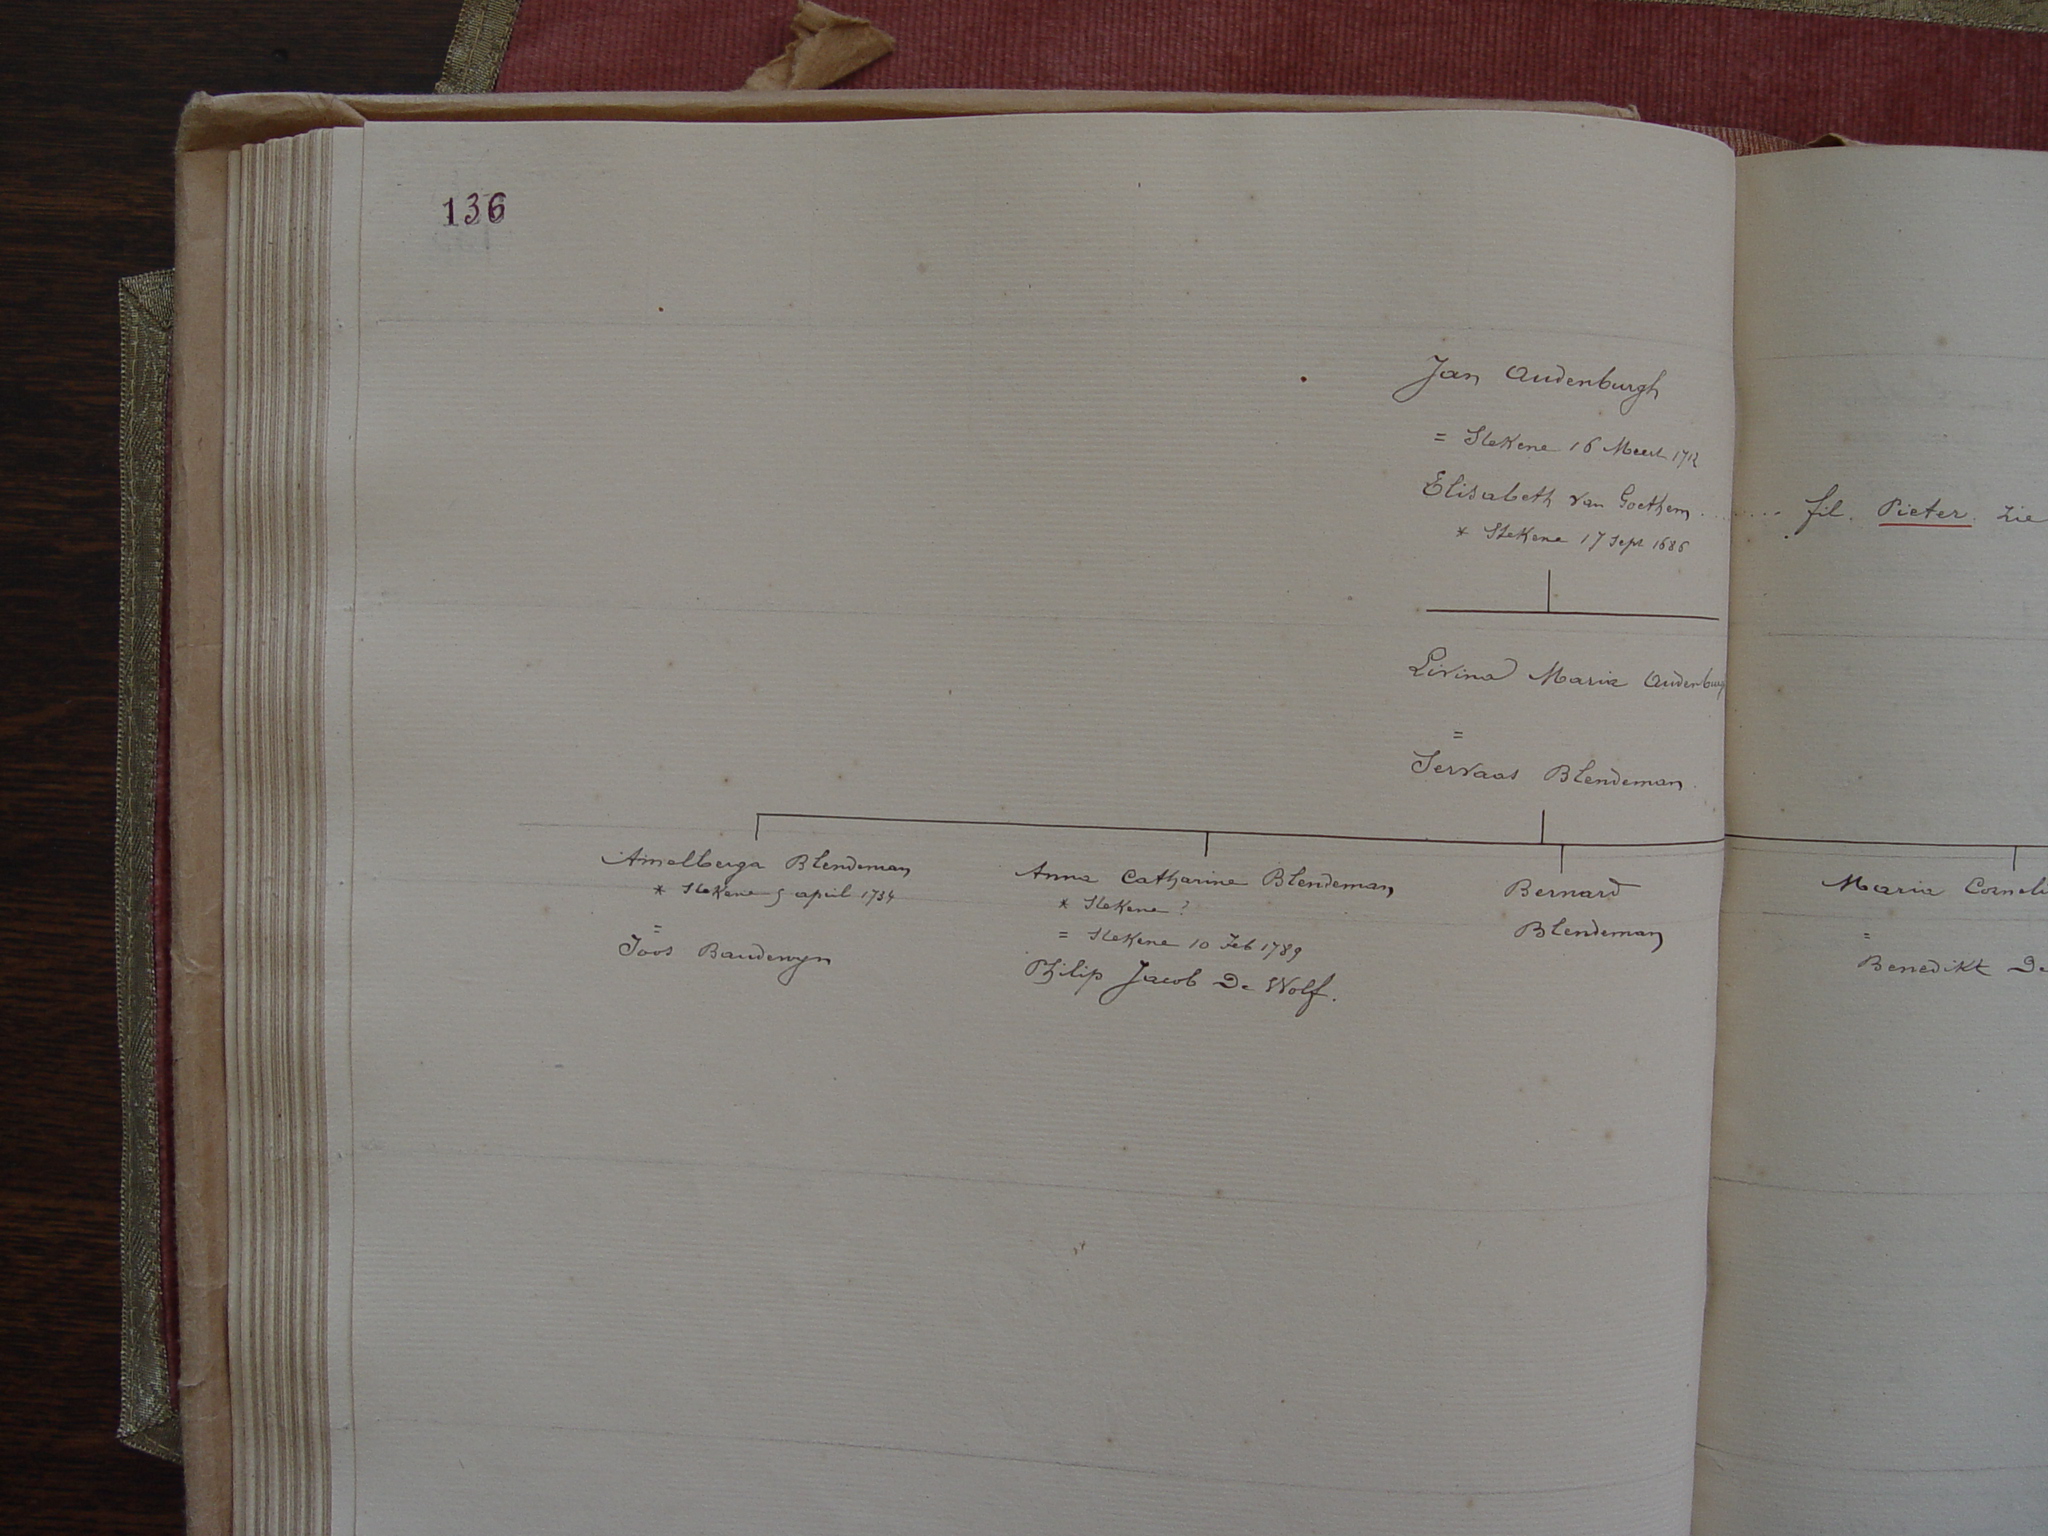 136
Jan Audenburgh
= Stekene 16 Meert 1712
Elisabeth van Goethem ........ fil. Pieter. zie
* Stekene 17 Sept 1686
Livina Maria Audenburg
=
Servaas Blendeman.
Amelberga Blendeman
* Stekene 5 april 1734
=
Joos Baudewyn
Anna Catharina Blendeman
* Stekene ?
= Stekene 10 Feb 1789
Philip Jacob De Wolf.
Bernard
Blendeman
Maria Corneli
=
Benedikt De